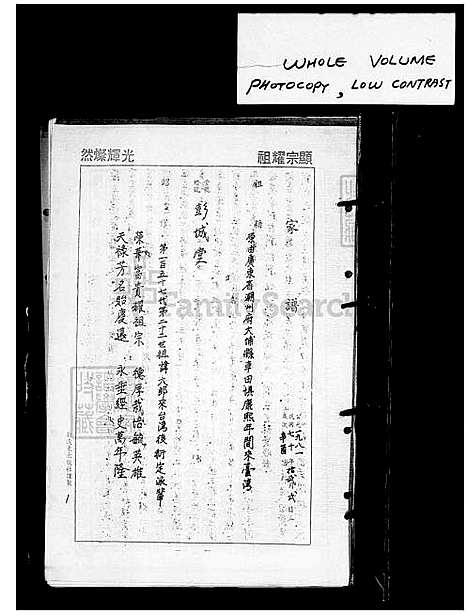 WHOLE VOLUME
PHOTOCOPY, LOW CONTRAST
顯宗耀祖
光輝燦然
家譜
一九八一
七十年
辛酉
祖籍
原由廣東省潮州府大埔縣
康熙年間來臺灣
彭城堂
第一百五十七代第二十二世祖諱六郎來台灣後衍定派輩
榮華富貴耀祖宗 德厚栽培毓英雄
天祿芳名貽慶遠 永垂經史萬年隆
FamilySearch
1